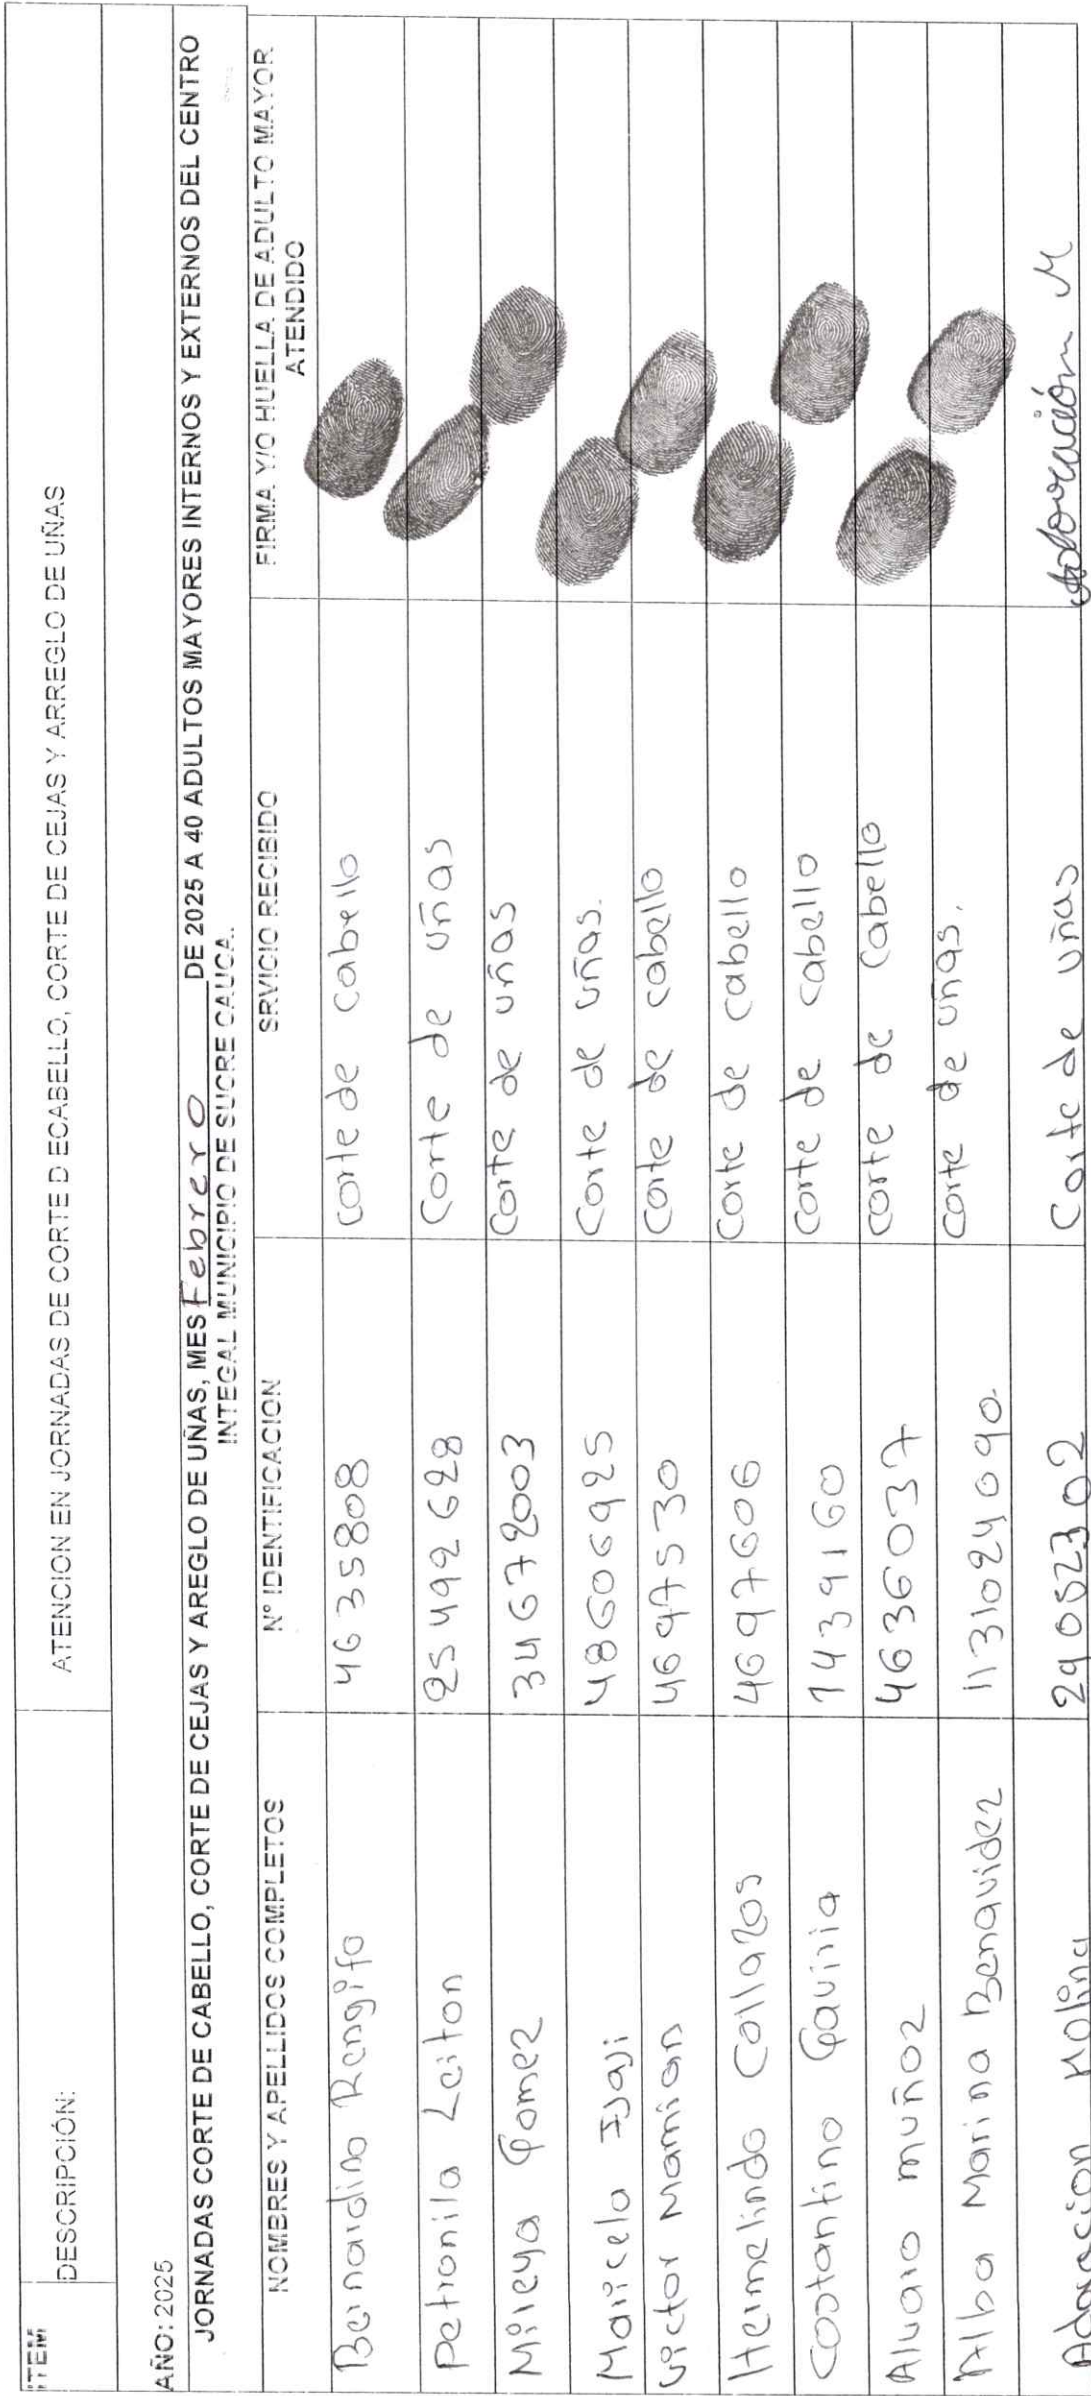 ITEM
DESCRIPCIÓN: ATENCION EN JORNADAS DE CORTE D ECABELLO, CORTE DE CEJAS Y ARREGLO DE UÑAS
AÑO: 2025
JORNADAS CORTE DE CABELLO, CORTE DE CEJAS Y AREGLO DE UÑAS, MES Febrero DE 2025 A 40 ADULTOS MAYORES INTERNOS Y EXTERNOS DEL CENTRO
INTEGAL MUNICIPIO DE SUCRE CAUCA.
NOMBRES Y APELLIDOS COMPLETOS N° IDENTIFICACION SRVICIO RECIBIDO FIRMA Y/O HUELLA DE ADULTO MAYOR
ATENDIDO
Bernardino Rengifo 4635808 corte de cabello
Petronila Leiton 25492628 Corte de uñas
Mireya Gomez 34672003 Corte de uñas
Maricela Ijaji 48606925 Corte de uñas.
Victor Mamian 4697530 corte de cabello
Hermelindo Collazos 4697606 Corte de cabello
Costantino Gaviria 1439160 corte de cabello
Alvaro muñoz 4636037 corte de cabello
Alba Marina Benavidez 1131024090 corte de uñas.
Adoracion Molina 29052302 Corte de uñas Adoración M